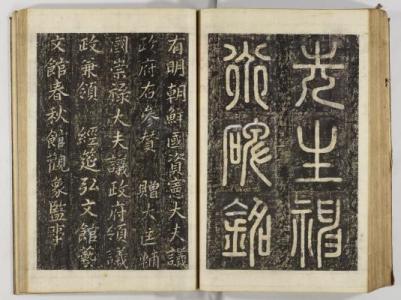 先生神
道碑銘
有明朝鮮國資憲大夫議
政府右參贊 贈大匡輔
國崇祿大夫議政府領議
政兼領 經筵弘文館藝
文館春秋館觀象監事